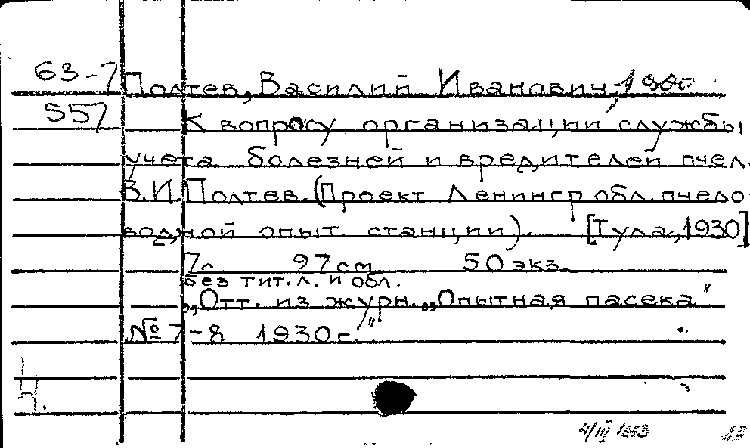 63-7 Полтев, Василий Иванович,
557 К вопросу организации службы
учета болезней и вредителей пчел.
В.И. Полтев. (Проект Ленингр. обл. пчело-
водной опыт. станции). [Тула, 1930]
7л 27см 50 экз.
без тит. л. и обл.
„Отт. из журн. „Опытная пасека"
№ 7-8 1930г."
Ч.